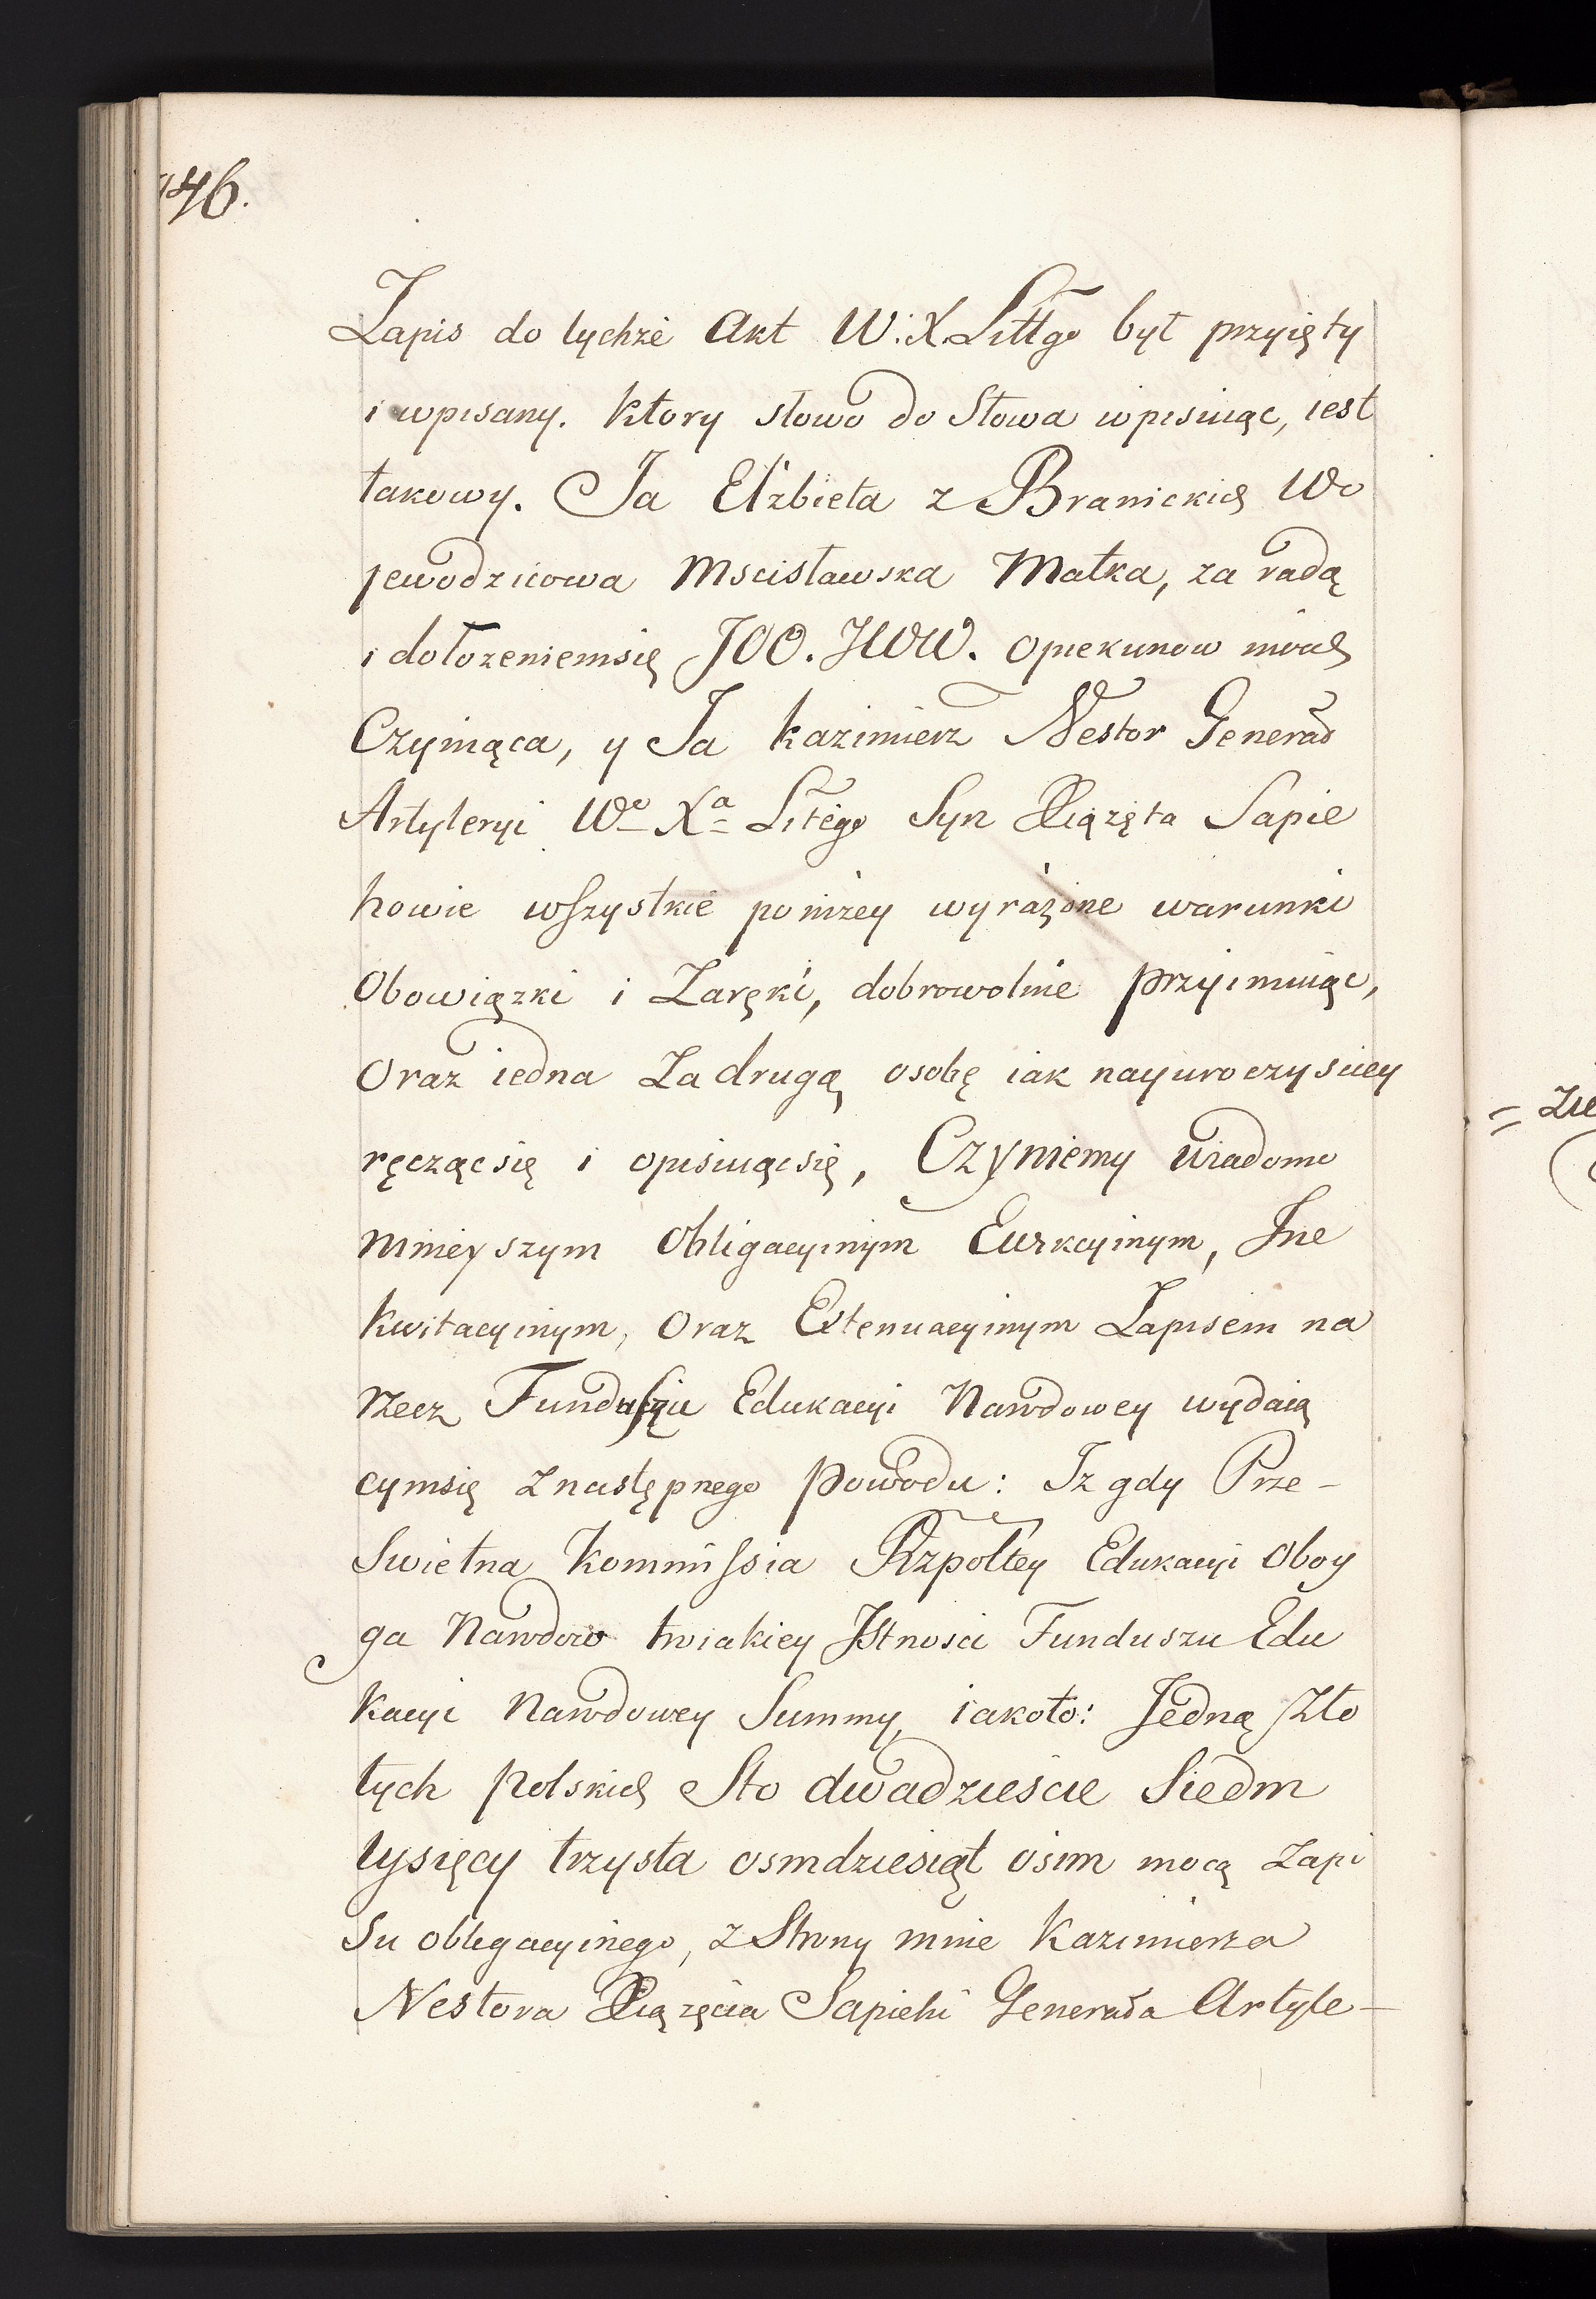 146.
Zapis do tychże Akt W: X. Littgo był przyięty
i wpisany. Ktory słowo do Słowa wpisuiąc, iest
takowy. Ja Elżbieta z Branickich Wo
jewodzicowa Mscisławska Matka, za radą
i dołożeniemsię JOO. JWW. Opiekunow moich
Czyniąca, y Ja Kazimierz Nestor Generał
Artyleryi Wo Xa Littego Syn Xiążęta Sapie
howie wszystkie poniżey wyrażone warunki
Obowiązki i Zaręki, dobrowolnie przyimuiąc,
Oraz iedna Za drugą osobę iak nayuroczyściey
ręcząc się i opisuiąc się, Czyniemy wiadomo
ninieyszym Obligacyinym Ewikcyinym, Ine
kwitacyinym, Oraz Extenuacyinym Zapisem na
rzecz Funduszu Edukacyi Narodowey wydaią
cymsię z następnego powodu: Iz gdy Prze-
Swietna Kommissia Rzpoltey Edukacyi Oboy
ga Narodow troiakiey Istnosci Funduszu Edu
kacyi Narodowey Summy, iakoto: Jedną Zło
tych polskich Sto dwadzieście Siedm
tysięcy trzysta osmdziesiąt ośim mocą Zapi
Su obligacyinego, z Strony mnie Kazimierza
Nestora Xiążęcia Sapiehi Generała Artyle-
= Zie